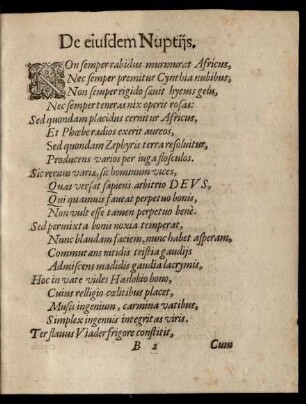 De eiusdem Nuptijs.
NOn semper rabidus murmurat Africus,
Nec semper premitur Cynthia nubibus,
Non semper rigido sæuit hyems gelu,
Nec semper teneras nix operit rosas:
Sed quondam placidus cernitur Africus,
Et Phœbe radios exerit aureos,
Sed quondam Zephyris terra resoluitur,
Producens varios per iuga flosculos.
Sic rerum varia, sic hominum vices,
Quas versat sapiens arbitrio DEVS,
Qui quamuis faueat perpetuo bonis,
Non vult esse tamen perpetuo benè.
Sed permixta bonis noxia temperat,
Nunc blandam faciem, nunc habet asperam,
Commutans nitidis tristia gaudijs
Admiscens madidis gaudia lacrymis,
Hoc in vate vides Haslobio bono,
Cuius relligio cœlitibus placet,
Musis ingenium, carmina vatibus,
Simplex ingenuis integritas viris.
Ter flauus Viader frigore constitit,
B 2 Cum